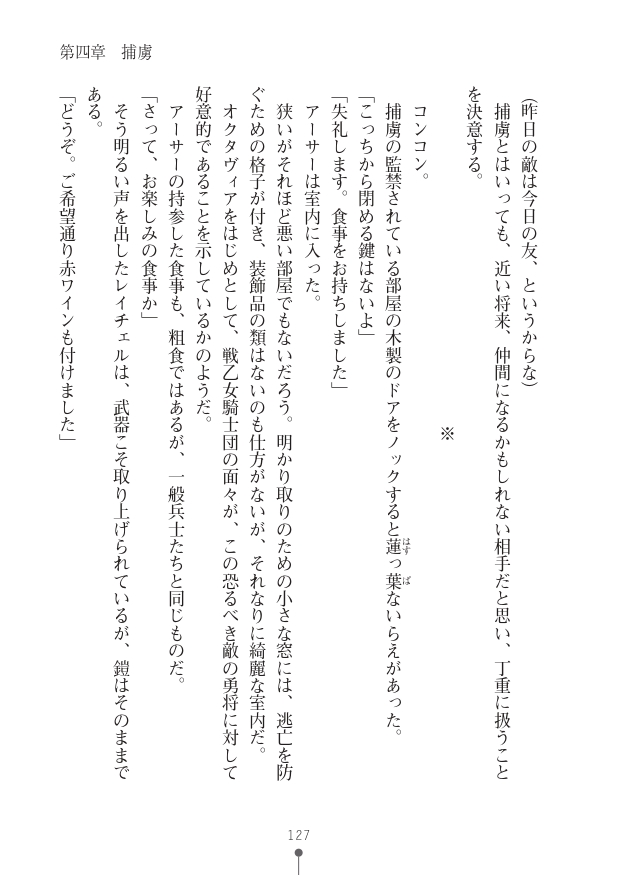 第四章　捕虜
（昨日の敵は今日の友、というからな）
　捕虜とはいっても、近い将来、仲間になるかもしれない相手だと思い、丁重に扱うこと
を決意する。
※
　コンコン。
　捕虜の監禁されている部屋の木製のドアをノックすると蓮っ葉ないらえがあった。
「こっちから閉める鍵はないよ」
「失礼します。食事をお持ちしました」
　アーサーは室内に入った。
　狭いがそれほど悪い部屋でもないだろう。明かり取りのための小さな窓には、逃亡を防
ぐための格子が付き、装飾品の類はないのも仕方がないが、それなりに綺麗な室内だ。
　オクタヴィアをはじめとして、戦乙女騎士団の面々が、この恐るべき敵の勇将に対して
好意的であることを示しているかのようだ。
　アーサーの持参した食事も、粗食ではあるが、一般兵士たちと同じものだ。
「さって、お楽しみの食事か」
　そう明るい声を出したレイチェルは、武器こそ取り上げられているが、鎧はそのままで
ある。
「どうぞ。ご希望通り赤ワインも付けました」
127